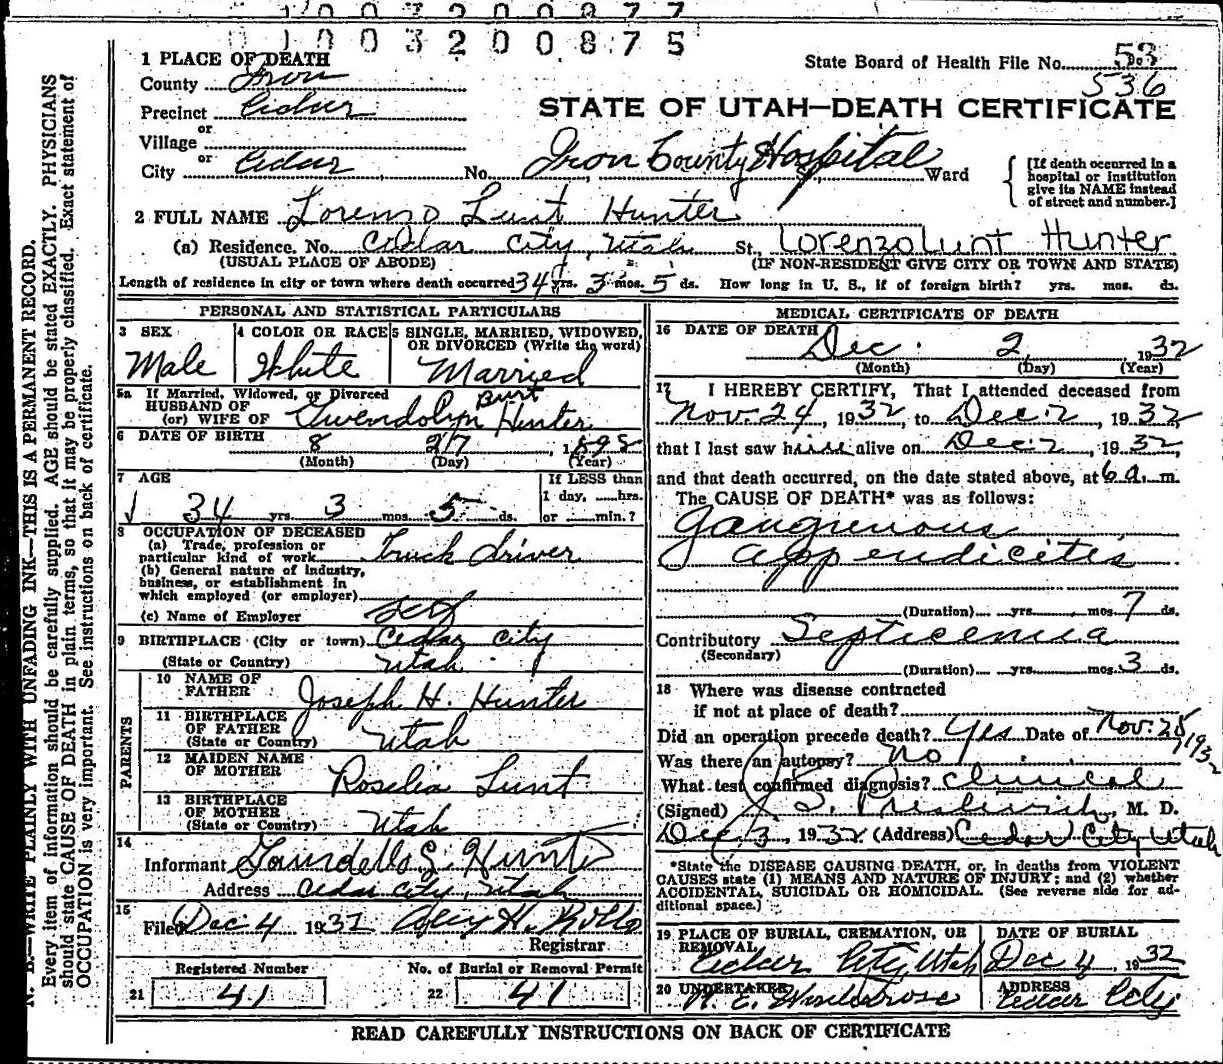 0100320087 5
1 PLACE OF DEATH
County Iron
Precinct Cedar
or
Village
or
City Cedar No. Iron County Hospital St., Ward
State Board of Health File No. 53
536
STATE OF UTAH—DEATH CERTIFICATE
[If death occurred in a
hospital or institution
give its NAME instead
of street and number.]
2 FULL NAME Lorenzo Lunt Hunter
(a) Residence. No. Cedar City, Utah St. Lorenzo Lunt Hunter
(USUAL PLACE OF ABODE) (IF NON-RESIDENT GIVE CITY OR TOWN AND STATE)
Length of residence in city or town where death occurred 34 yrs. 3 mos. 5 ds. How long in U. S., if of foreign birth? yrs. mos. ds.
PERSONAL AND STATISTICAL PARTICULARS
3 SEX 4 COLOR OR RACE 5 SINGLE, MARRIED, WIDOWED,
OR DIVORCED (Write the word)
Male White Married
5a If Married, Widowed, or Divorced
HUSBAND OF
(or) WIFE OF Gwendolyn Burt Hunter
6 DATE OF BIRTH
8 27 1898
(Month) (Day) (Year)
7 AGE If LESS than
1 day, hrs.
34 yrs. 3 mos. 5 ds. or min.?
8 OCCUPATION OF DECEASED
(a) Trade, profession or
particular kind of work Truck driver
(b) General nature of industry,
business, or establishment in
which employed (or employer)
(c) Name of Employer self
9 BIRTHPLACE (City or town) Cedar City
(State or Country) Utah
PARENTS
10 NAME OF
FATHER Joseph H. Hunter
11 BIRTHPLACE
OF FATHER
(State or Country) Utah
12 MAIDEN NAME
OF MOTHER Roselia Lunt
13 BIRTHPLACE
OF MOTHER
(State or Country) Utah
14
Informant S. Hunter
Address Cedar City, Utah
15
Filed Dec 4 1932
Registrar
Registered Number No. of Burial or Removal Permit
21 41 22 41
MEDICAL CERTIFICATE OF DEATH
16 DATE OF DEATH
Dec. 2 1932
(Month) (Day) (Year)
17 I HEREBY CERTIFY, That I attended deceased from
Nov. 24, 1932, to Dec. 2, 1932
that I last saw him alive on Dec. 2, 1932,
and that death occurred, on the date stated above, at 6 a. m.
The CAUSE OF DEATH* was as follows:
gangrenous
appendicitis
(Duration) yrs. mos. 7 ds.
Contributory Septicemia
(Secondary)
(Duration) yrs. mos. 3 ds.
18 Where was disease contracted
if not at place of death?
Did an operation precede death? Yes Date of Nov. 25, 1932
Was there an autopsy? No
What test confirmed diagnosis? clinical
(Signed) J. S. Prestwich, M. D.
Dec 3, 1932 (Address) Cedar City Utah
*State the DISEASE CAUSING DEATH, or, in deaths from VIOLENT
CAUSES state (1) MEANS AND NATURE OF INJURY; and (2) whether
ACCIDENTAL, SUICIDAL OR HOMICIDAL. (See reverse side for ad-
ditional space.)
19 PLACE OF BURIAL, CREMATION, OR
REMOVAL
Cedar City Utah
DATE OF BURIAL
Dec 4, 1932
20 UNDERTAKER
ADDRESS
Cedar City
READ CAREFULLY INSTRUCTIONS ON BACK OF CERTIFICATE
N. B.—WRITE PLAINLY WITH UNFADING INK—THIS IS A PERMANENT RECORD.
Every item of information should be carefully supplied. AGE should be stated EXACTLY. PHYSICIANS
should state CAUSE OF DEATH in plain terms, so that it may be properly classified. Exact statement of
OCCUPATION is very important. See instructions on back of certificate.